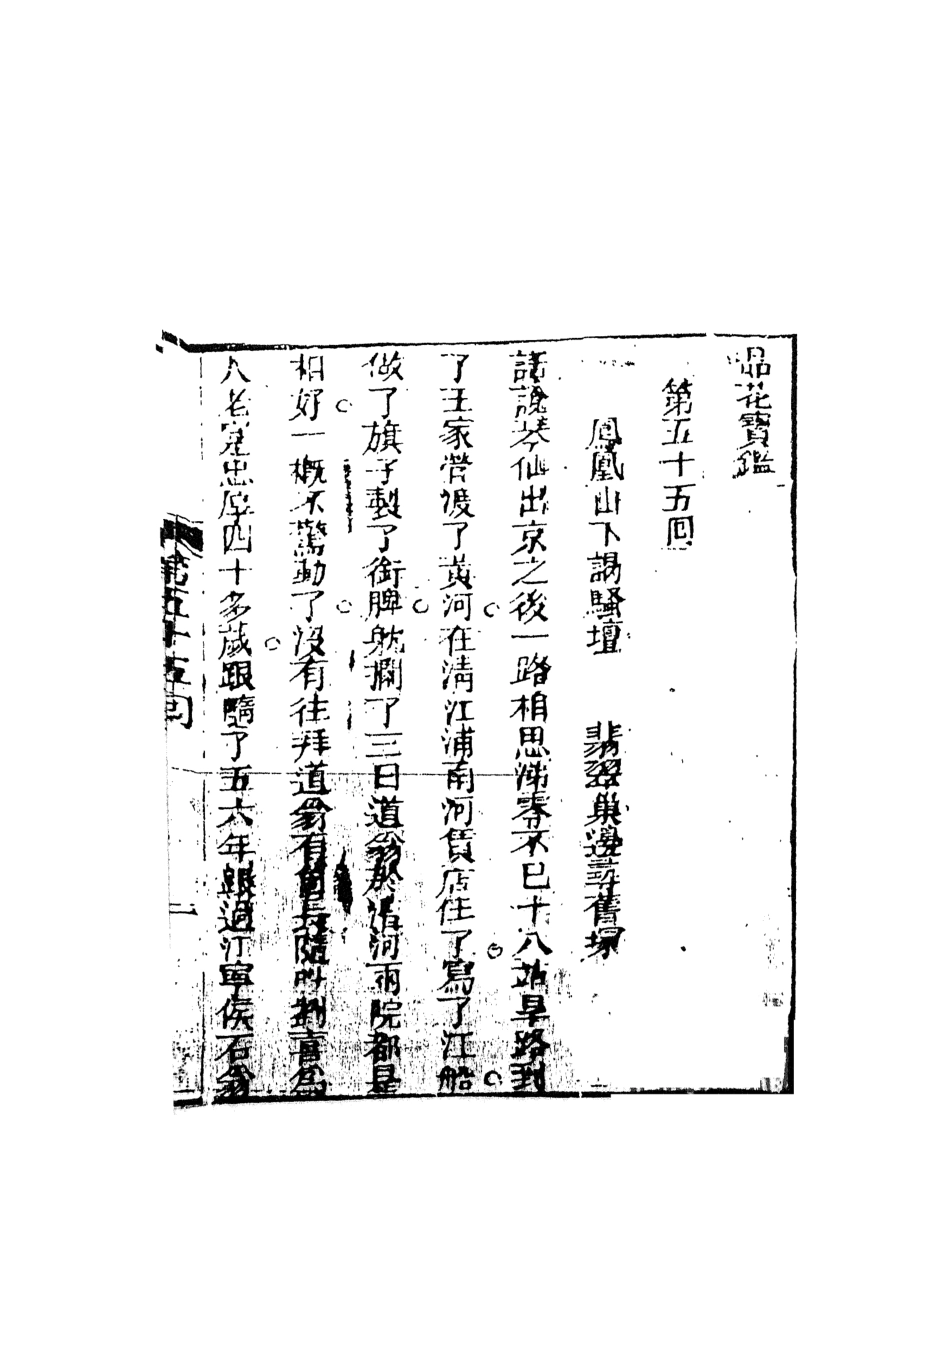 品花寶鑑
第五十五回
鳳凰山下謁騷壇　翡翠巢邊尋舊塚
話說琴仙出京之後一路相思涕零不已十八站旱路到
了王家營渡了黃河在清江浦南河賃店住了寫了江船
做了旗子製了銜牌躭擱了三日道翁於清河兩院都是
相好一概不驚動了沒有往拜道翁有個長隨叫劉喜為
人老寔忠厚四十多歲跟隨了五六年跟過江寧侯石翁
第五十五回
一